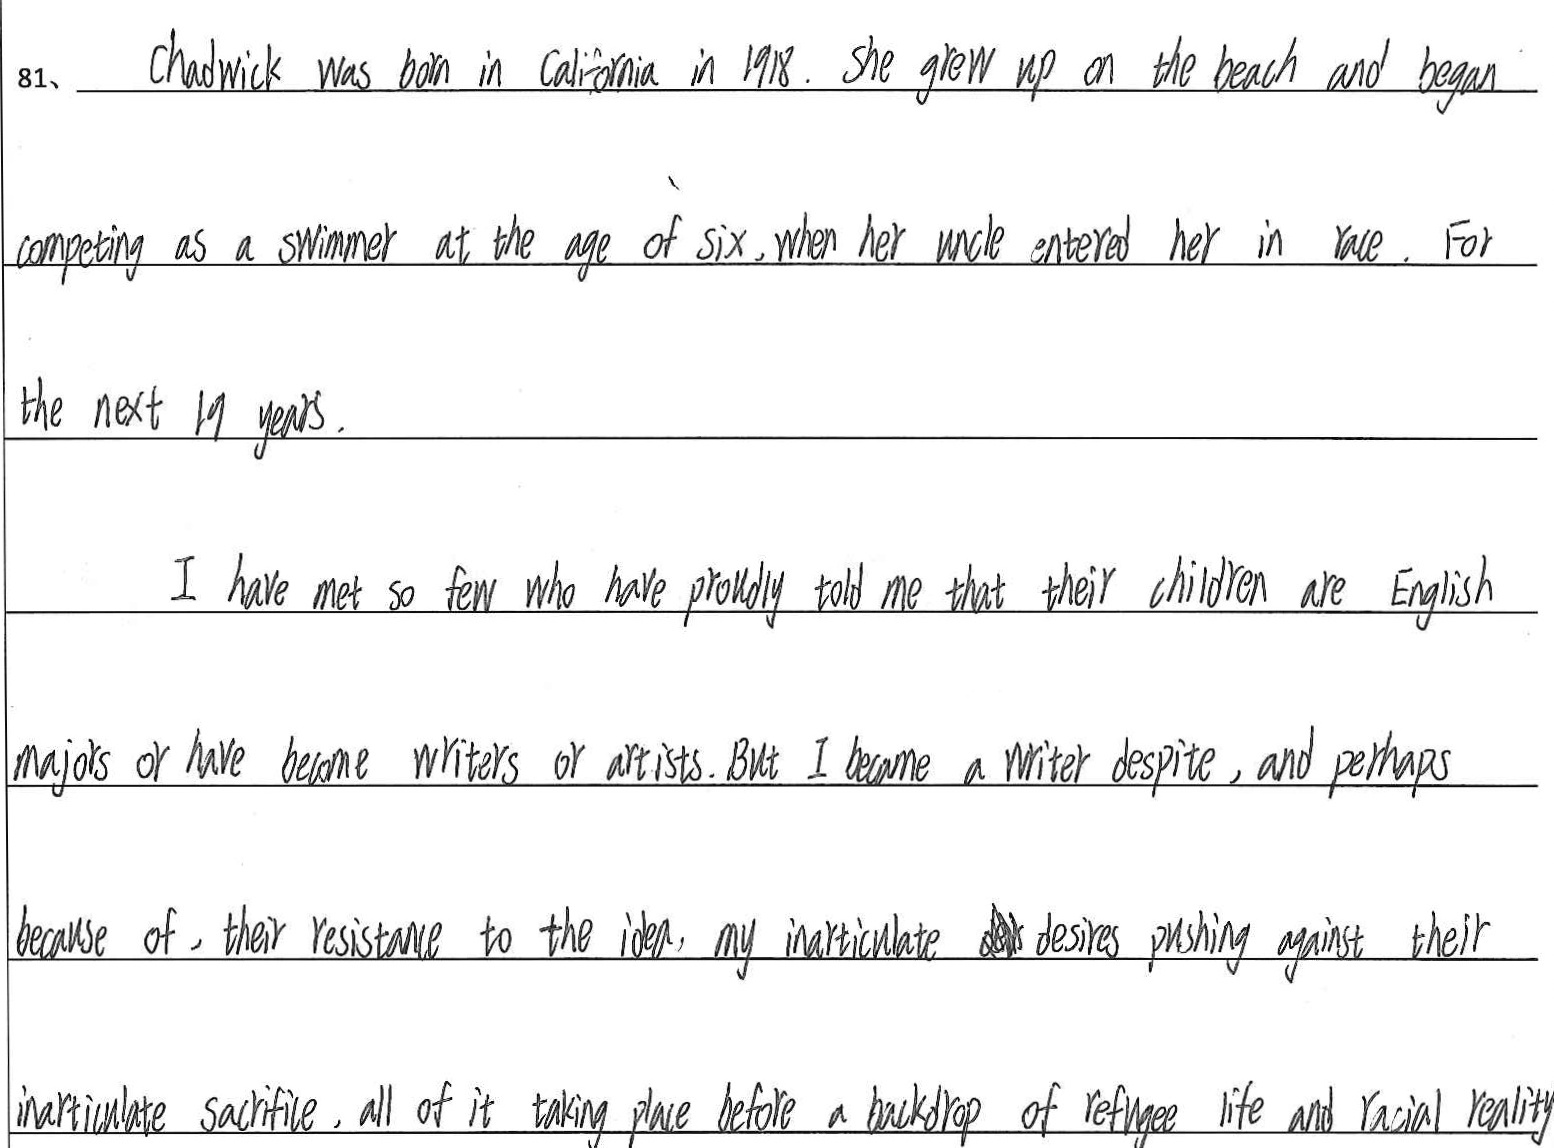 81、 Chadwick was born in California in 1918. She grew up on the beach and began
competing as a swimmer at the age of six, when her uncle entered her in race. For
the next 19 years.
I have met so few who have proudly told me that their children are English
majors or have become writers or artists. But I became a writer despite, and perhaps
because of, their resistance to the idea, my inarticulate desires pushing against their
inarticulate sacrifice, all of it taking place before a backdrop of refugee life and racial reality